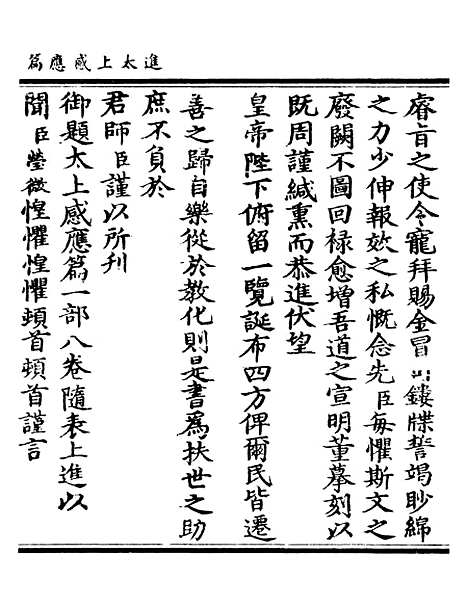 進太上感應篇
睿旨之使令寵拜賜金冒以鏤牒誓竭眇綿
之力少伸報效之私慨念先臣每懼斯文之
廢闕不圖回祿愈增吾道之宣明董摹刻以
既周謹緘熏而恭進伏望
皇帝陛下俯留一覽誕布四方俾爾民皆遷
善之歸自樂從於教化則是書為扶世之助
庶不負於
君師臣謹以所刊
御題太上感應篇一部八卷隨表上進以
聞臣瑩微惶懼惶懼頓首頓首謹言